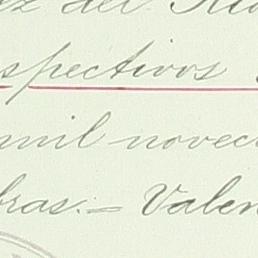 az del R
spectivos
mil novec
bras.= Valen